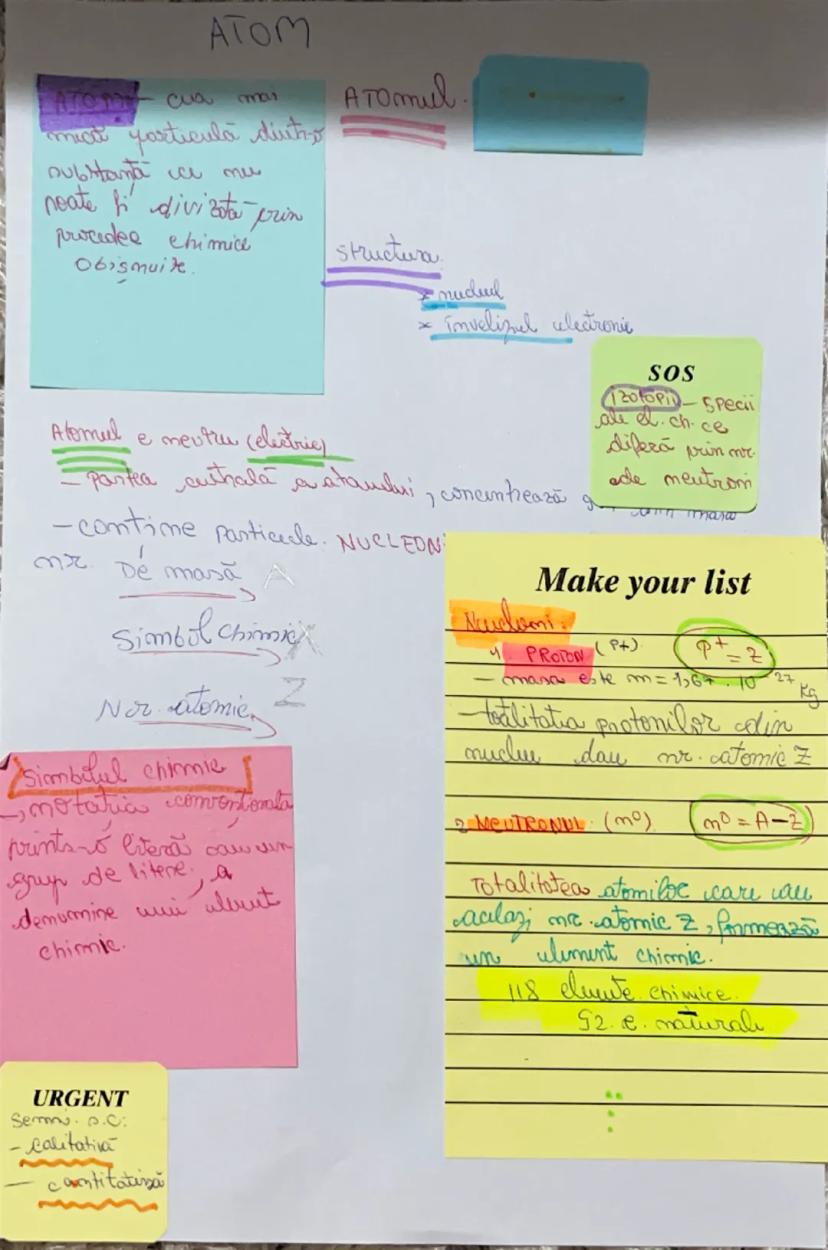 ATOM
ATOM - cea mai
mică particulă dintr-o
substanță ce nu
poate fi divizată prin
procedee chimice
obișnuite.
ATOMUL.
structura:
* nucleul
* învelișul electronic
SOS
izotopii - specii
ale el. ch. ce
diferă prin nr.
de neutroni
Atomul e neutru (electric)
- partea centrală a atomului, concentrează masa
- conține particule. NUCLEONI
nr. De masă A
Simbol chimic X
Nr. atomic Z
Make your list
Nucleoni:
1. PROTON (p+) p+ = Z
- masa este m = 1,67 · 10 -27 kg
- totalitatea protonilor din
nucleu dau nr. atomic Z
2. NEUTRONUL (n⁰) n⁰ = A - Z
Totalitatea atomilor care au
același nr. atomic Z, formează
un element chimic.
118 elemente chimice
92 e. naturale
Simbolul chimic
notația convențională
printr-o literă sau un
grup de litere, a
denumirii unui element
chimic.
URGENT
Semn. s.c:
- calitativă
- cantitativă